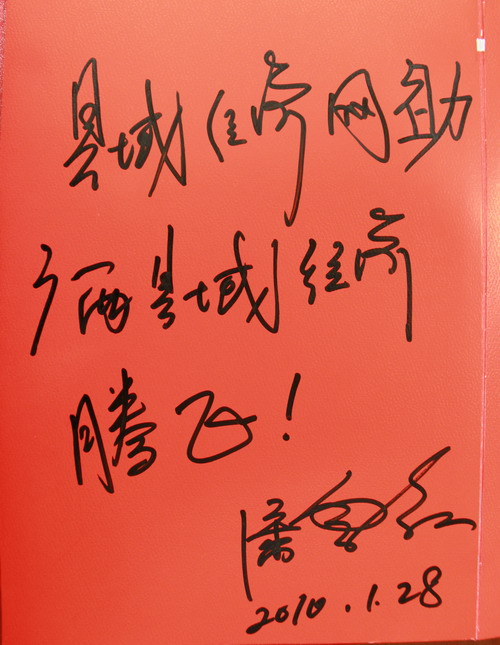 县域经济网助
广西县域经济
腾飞!
潘红
2010.1.28